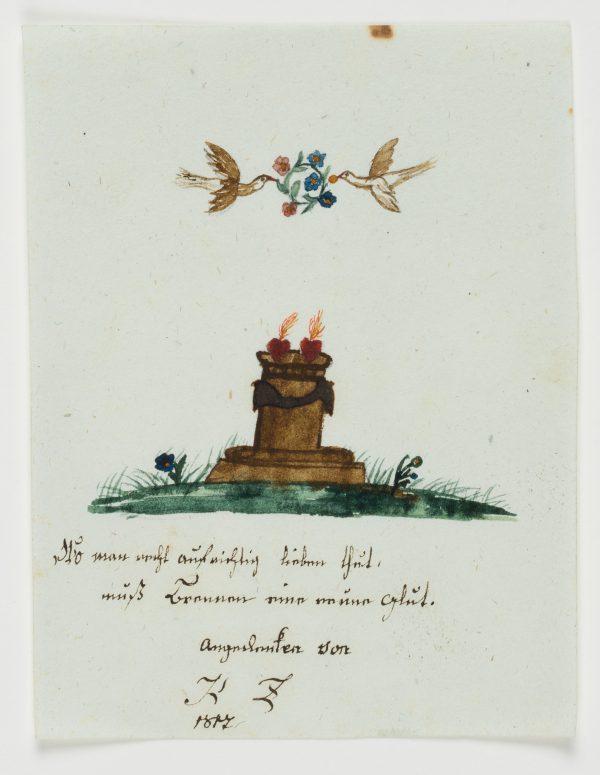 Wo man recht aufrichtig lieben thut,
muß brennen eine reine Glut.
Angedenken von
Z
1817